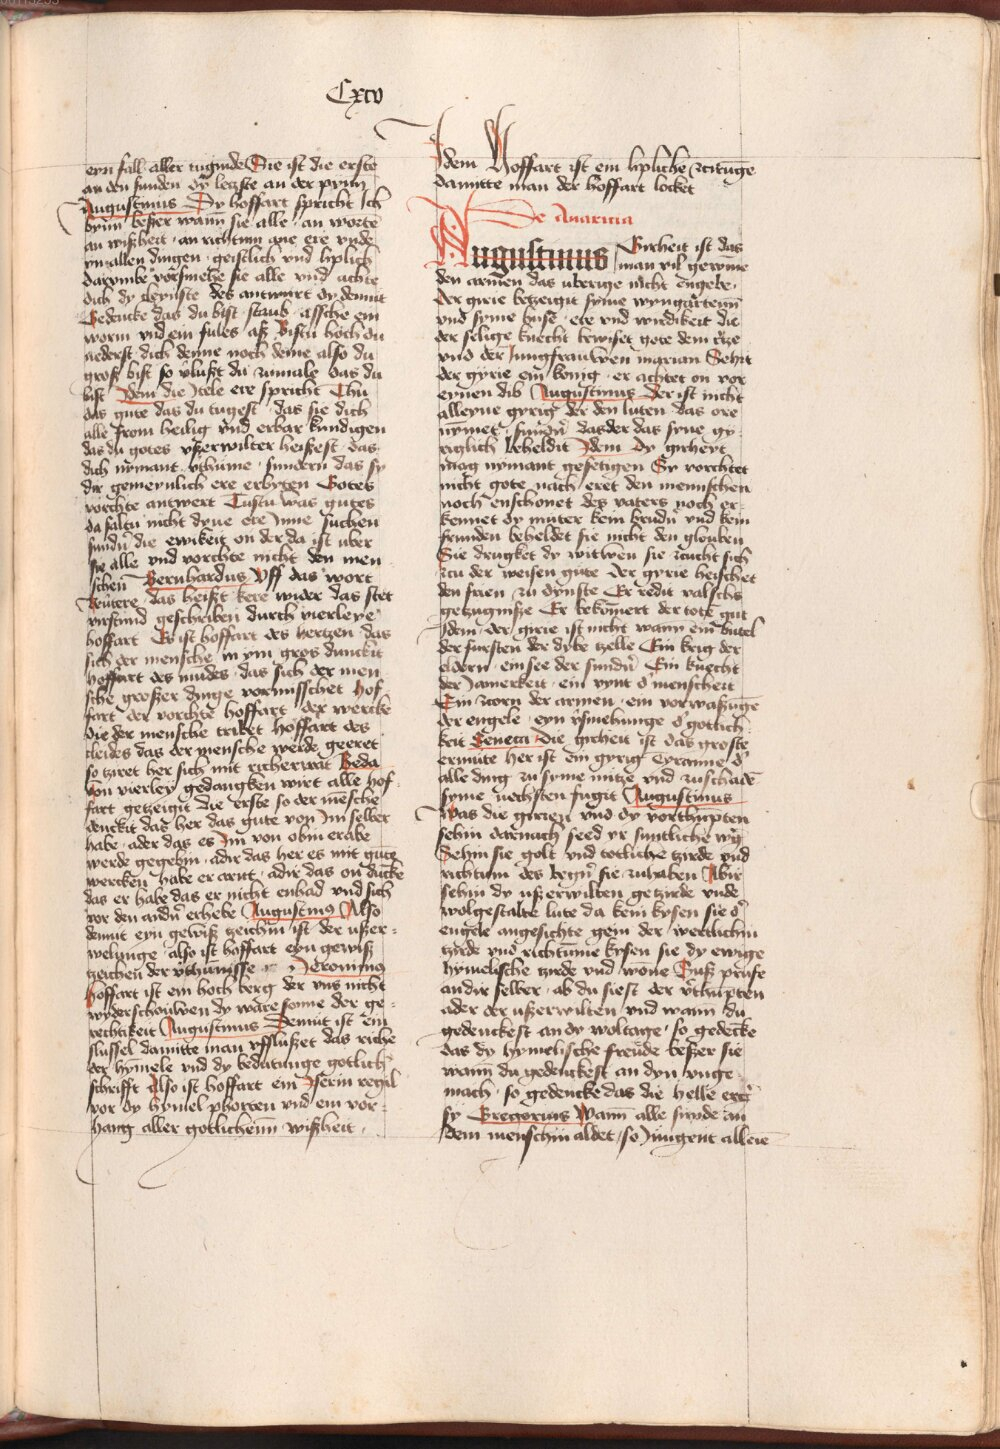 Cxv
eyn fall aller tuginde Sie ist die erste
an den sunden dy leczste an der pynn
Augustinus Dy hoffart spricht Ich
bynn beßer wann sie alle an worte
an wißheit an richtum ane ere vnde
yn allen dingen geistlich vnd liplich
darumbe vorsmehe sie alle vnd achte
dich dy cleynste des antwurt dy demut
Gedencke das du bist staub assche ein
worm vnd ein fules aß Bistu hoch du
nederst dich denne noch deme also du
groß bist so vlußt du zumale das du
bist Idem die Itele ere spricht Thu
das gute das du tugest das sie dich
alle from heilig vnd erbar kundigen
das du gotes vßerwilter heißest das
dich nymant vthurme sundern das sy
dir gemeynlich ere erbyten Gotes
vorchte antwert Tustu was gutes
da saltu nicht dyne ere Inne suchen
sundn die ewikeit on der da ist uber
sie alle vnd vorchte nicht den men
schen Bernhardus Uff das wort
Reutere das heißt kere wider das stet
virstund geschriben durch vierleye
hoffart Es ist hoffart des hertzen das
sich der mensche in ym gros dunckit
hoffart des mudes das sich der men
sche großer dinge vormisschet hof
fart der vorchte hoffart der wercke
die der mensche tribet hoffart des
cleides das der mensche werde geeret
so tziret her sich mit richerwat Beda
Von vierley gedangken wirt alle hof
fart getzeigit die erste so der mēsche
dunckit das her das gute von Im selber
habe ader das es Im von obin erabe
werde gegebin adir das her es mit gutē
wercken habe er arnt adir das on dūcke
das er habe das er nicht enhad vnd sich
vor den andn erhebe Augustinꝰ Also
demut eyn gewiß tzeichin ist der ußer=
welunge also ist hoffart eyn gewiß
tzeichen der vthumnisse Ieronimus
hoffart ist ein hoch berg der vns nicht
wyderschouwen dy ware sonne der ge=
rechtikeit Augustinus Demut ist ein
slussel damitte man vffslußet das riche
der hymele vnd dy bedutunge gotlich
schrifft Also ist hoffart ein Iserin regil
vor dy hymel phorten vnd ein vor=
hang aller gotlichenn wißheit
Idem Hoffart ist ein liplliche reitzunge
damitte man der hoffart locket
De Auaricia
Augustinus Girheit ist das
man vil gewinne
den armen das ubirge nicht engebe
Der girie betzeigit syme wyngartenn
vnd syme huse ere vnd wirdikeit die
der selige knecht bewiset gote dem
vnd der Jungfrauwen marian Sehit
der gyrie ein konig er achtet on vor
eynen dib Augustinus Der ist nicht
alleyne gyrig der den luten das ore
nymet sundn dasder das syne gy
riglich beheldit Idem Dy girheyt
mag nymant gesetigen Sy vorchtet
nicht gote nach eret den mennschen
noch enschonet des vaters noch er=
kennet dy muter kein brudir vnd kein
frunden beheldet sie nicht den glouben
Sie drugket dy witwen sie zcucht sich
zcu der weisen gute Der gyrie heischet
den frien zu dynste Er redit valsche
getzugnisze Er bekomert der tote gut
Idem der girie ist nicht wann ein butel
der fursten der dybe tzelle Ein krig der
eldern ein see der sundn Ein knecht
der Jamerkeit ein vynt d menscheit
Ein zcorn der armen ein vorwaßunge
der engele eyn vsmehunge d gotlich
keit Seneca die girheit ist das groste
ermute her ist ein gyrig tyranne d
alle ding zu syme nutze vnd zu schadē
syme nechsten fugit Augustinus
Was die girien vnd dy vorthumpten
sehin darnach seed yr suntliche
Sehin sie golt vnd totliche tzirde vnd
richtum des begn sie zuhaben Abir
sehin dy ußerwilten getzirde vnde
wolgestalte lute da kein kysen sie d
engele angesichte gein der wertlichin
tzirde vnd richtume kysen sie dy ewige
hymelische tzirde vnd wone Suß prufe
an dir selber ab du siest der vthumpten
ader der ußerwilten vnd wann du
gedenckest an dy woltage so gedencke
das dy hymelische freude beßer sie
wann du gedenckest an dyn vnge=
mach so gedencke das die helle erg
sy Gregorius Wann alle sunde an
dem menschin aldet so Jungent alleīe